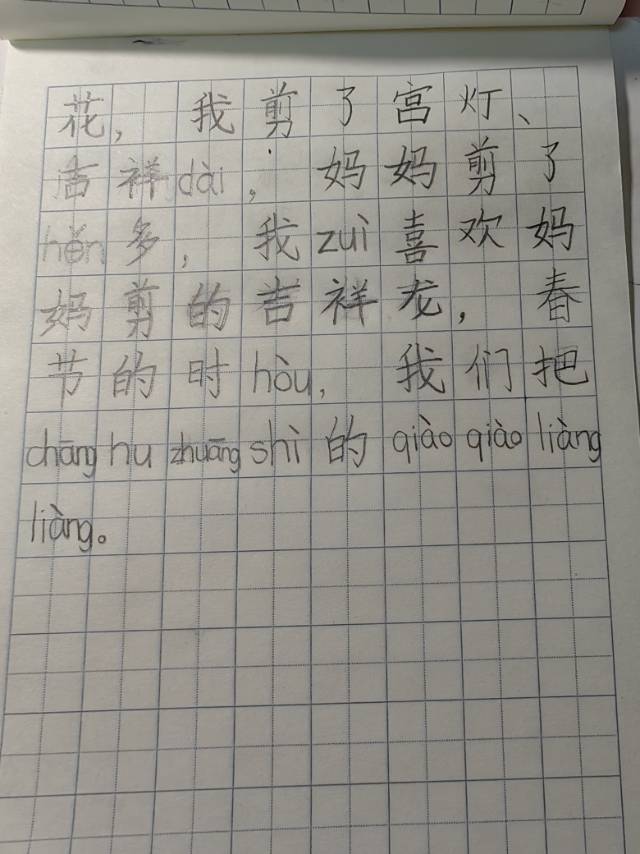 花，我剪了宫灯、
吉祥dài，妈妈剪了
hěn多，我zuì喜欢妈
妈剪的吉祥龙，春
节的时hòu，我们把
chāng hu zhuāng shì的qiào qiào liàng
liàng。